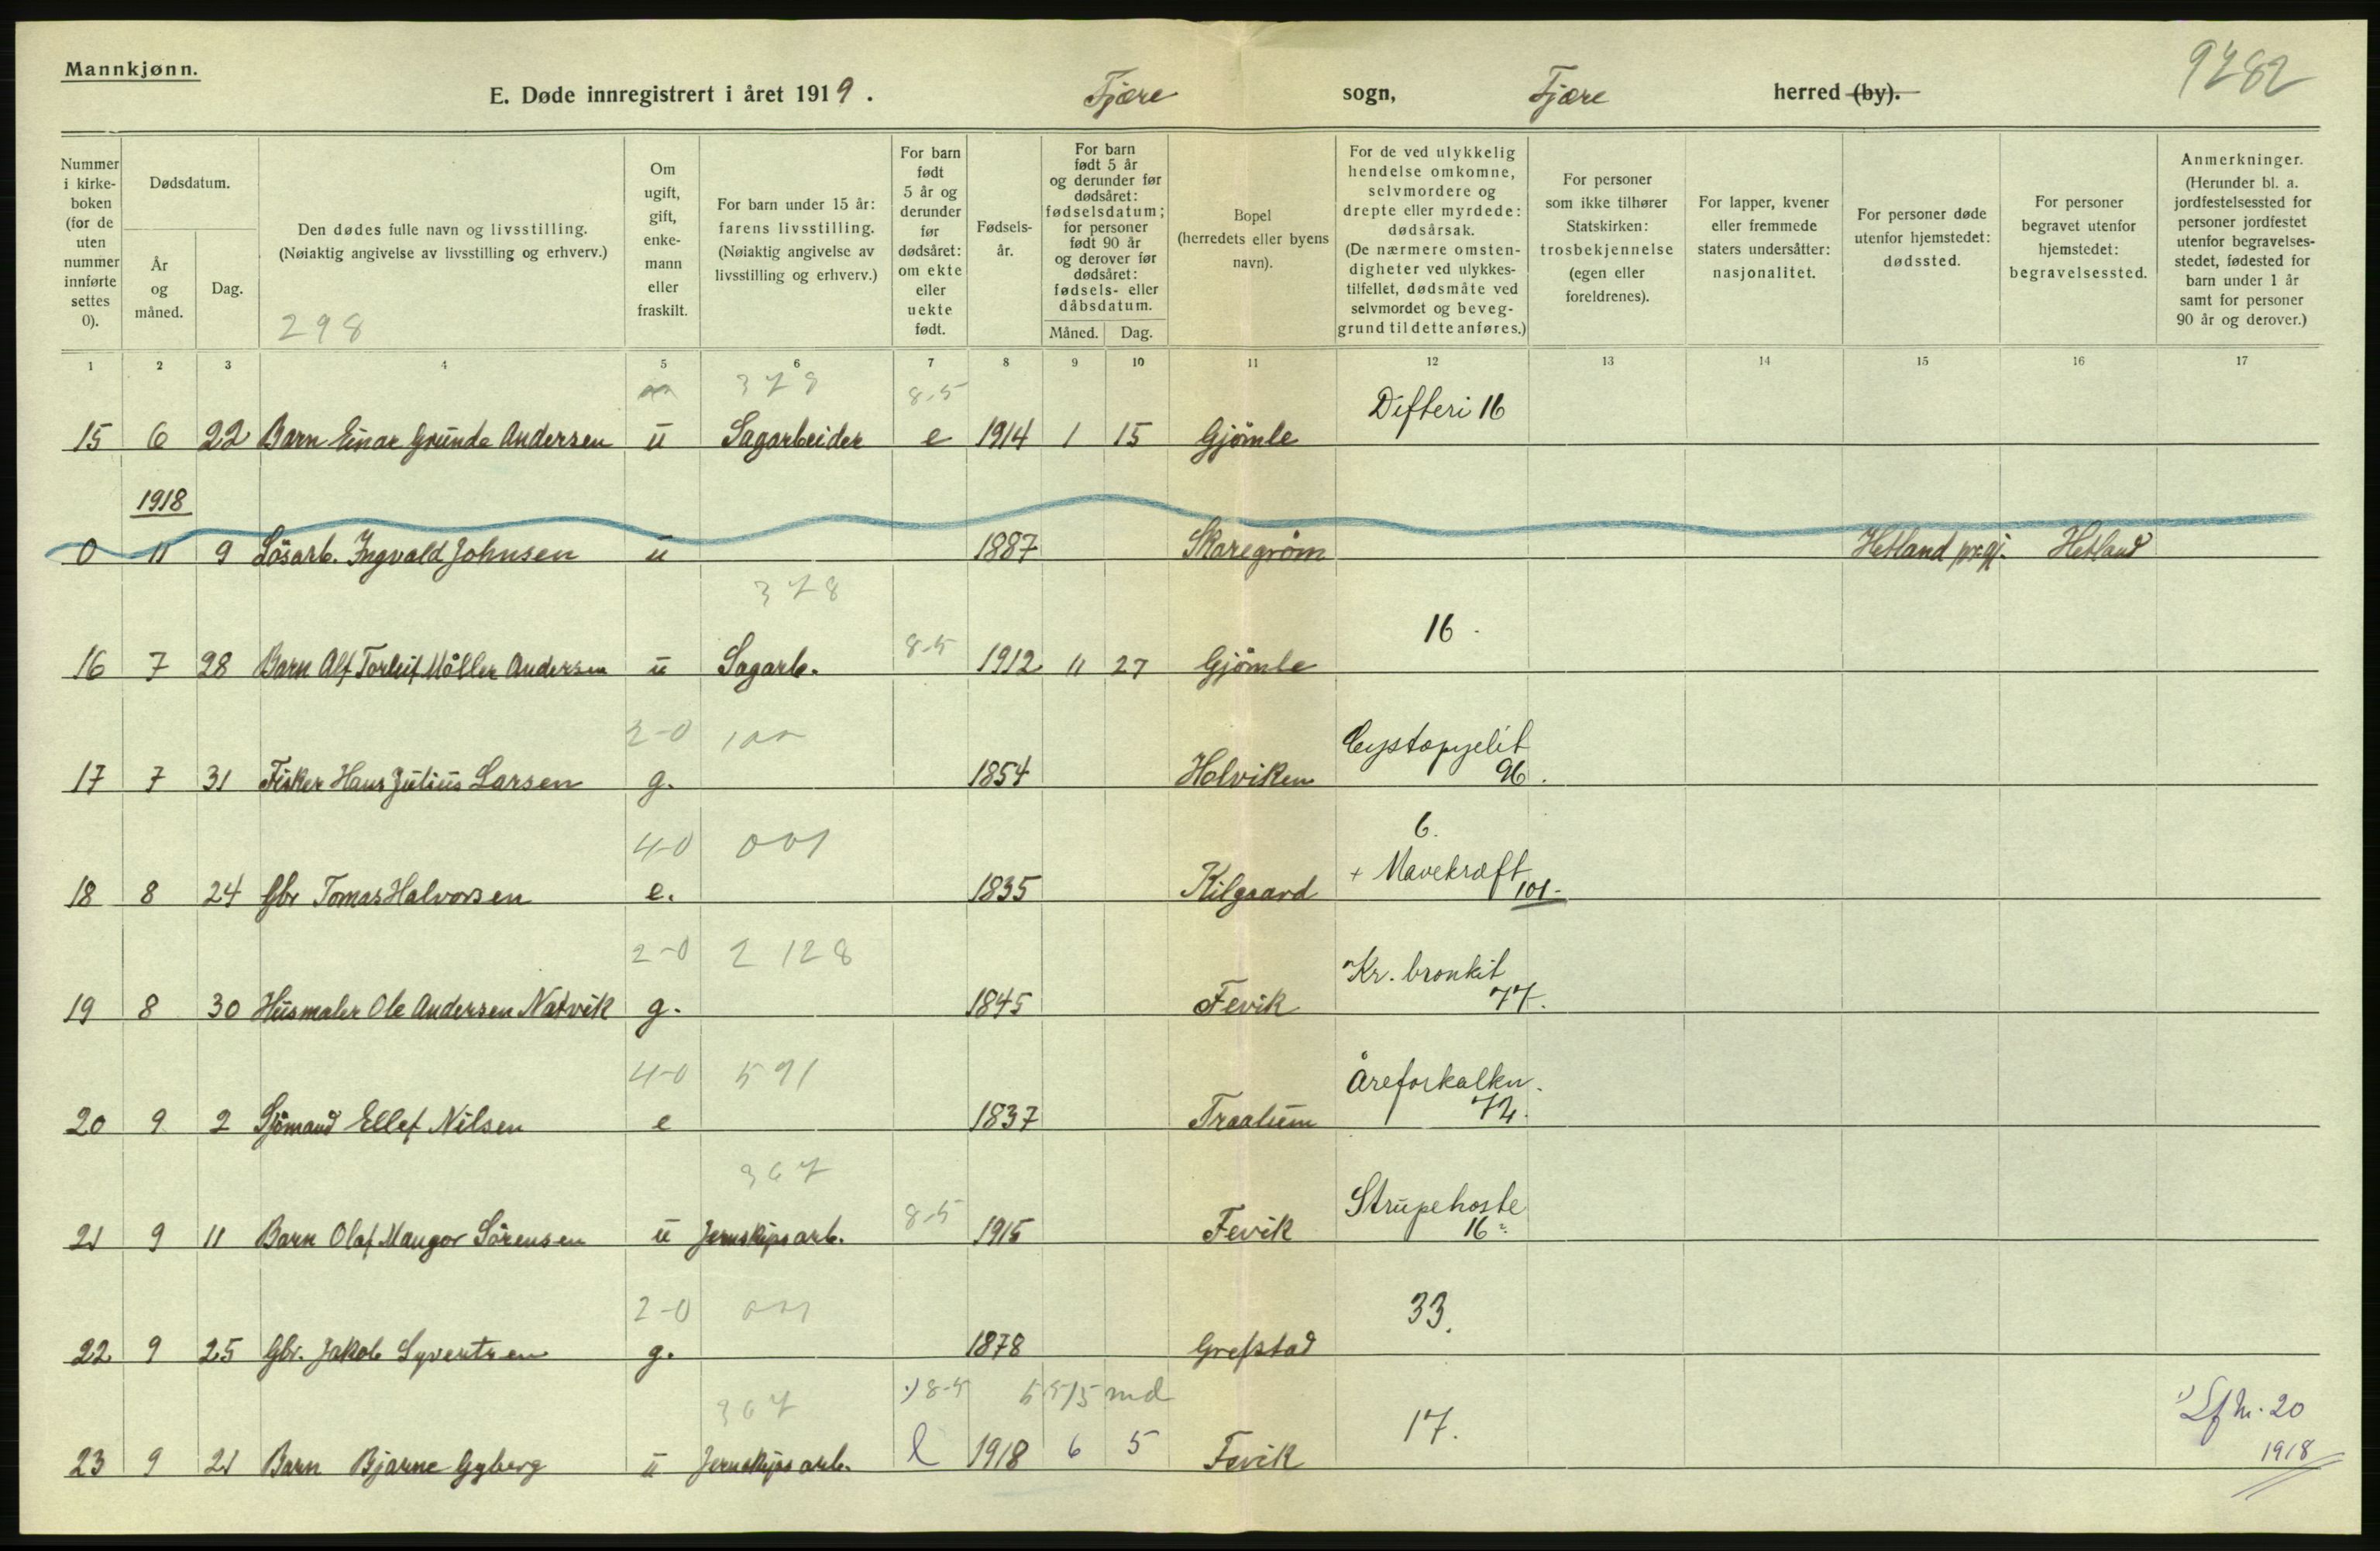 Mannkjønn.
9782
E. Døde innregistrert i året 1919. Fjære sogn, Fjære herred (by).
Nummer i kirke- boken (for de uten nummer innførte settes 0).
Dødsdatum.
År og måned.
Dag.
Den dødes fulle navn og livsstilling.
(Nøiaktig angivelse av livsstilling og erhverv.)
298
Om ugift, gift, enke- mann eller fraskilt.
For barn under 15 år: farens livsstilling. (Nøiaktig angivelse av livsstilling og erhverv.)
For barn født 5 år og derunder før dødsåret: om ekte eller uekte født.
Fødsels- år.
For barn født 5 år og derunder før dødsåret: fødselsdatum; for personer født 90 år og derover før dødsåret: fødsels- eller dåbsdatum.
Måned. Dag.
Bopel (herredets eller byens navn).
For de ved ulykkelig hendelse omkomne, selvmordere og drepte eller myrdede: dødsårsak. (De nærmere omsten- digheter ved ulykkes- tilfellet, dødsmåte ved selvmordet og beveg- grund til dette anføres.)
For personer som ikke tilhører Statskirken: trosbekjennelse (egen eller foreldrenes).
For lapper, kvener eller fremmede staters undersåtter: nasjonalitet.
For personer døde utenfor hjemstedet: dødssted.
For personer begravet utenfor hjemstedet: begravelsessted.
Anmerkninger. (Herunder bl. a. jordfestelsessted for personer jordfestet utenfor begravelses- stedet, fødested for barn under 1 år samt for personer 90 år og derover.)
1 2 3 4 5 6 7 8 9 10 11 12 13 14 15 16 17
379 8-5 Difteri 16
15 6 22 Barn Einar Grunde Andersen u Sagarbeider e 1914 1 15 Gjömle
1918
0 11 9 Lösarb. Ingvald Johnsen u 1887 Skaregröm Hetland pr.gj. Hetland
378
8-5 16.
16 7 28 Barn Alf Torleif Möller Andersen u Sagarb. 1912 11 27 Gjömle
2-0 Cystopyelit
96.
17 7 31 Fisker Hans Julius Larsen g. 1854 Holviken
4-0 001 6.
+ Mavekræft
101-
18 8 24 Gbr Tomas Halvorsen e. 1835 Kilgaard
2-0 2 128 Kr. bronkit
77.
19 8 30 Husmaler Ole Andersen Natvik g. 1845 Fevik
4-0 591 Åreforkalkn.
72.
20 9 2 Sjömand Ellef Nilsen e 1837 Traalum
367
8-5 Strupehoste
16
21 9 11 Barn Olaf Mangor Sörensen u Jernskipsarb. 1915 Fevik
2-0 001 33.
22 9 25 Gbr. Jakob Syvertsen g. 1878 Grefstad
367 8-5 15 md 17. Lf nr. 20
1918
23 9 21 Barn Bjarne Gyberg u Jernskipsarb. l 1918 6 5 Fevik